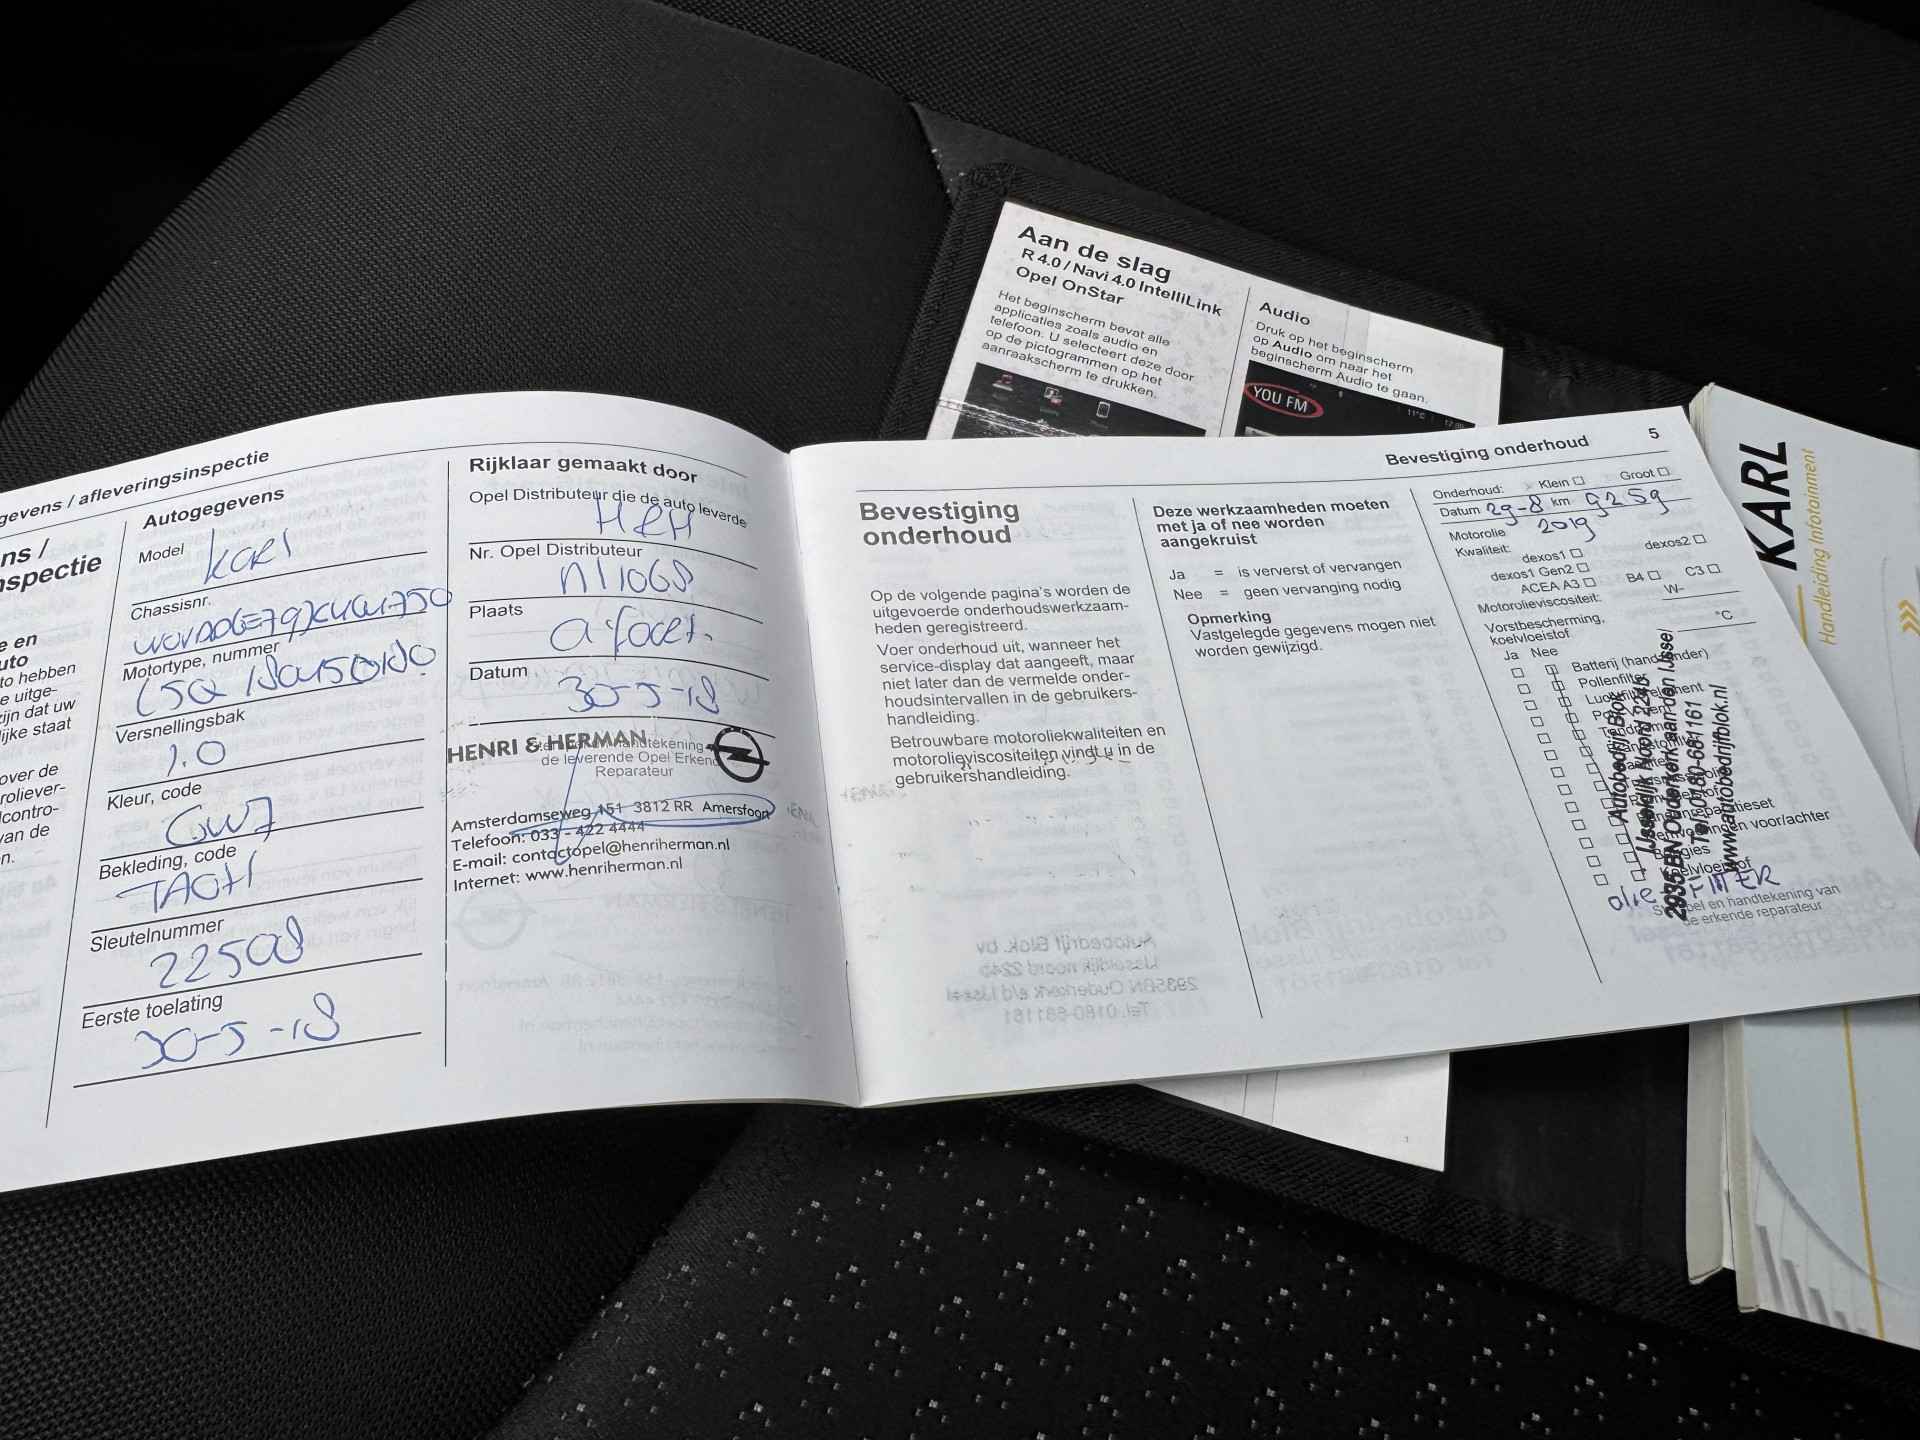 gevens / afleveringsinspectie
ns /
nspectie
e en
uto
to hebben
e uitge-
zijn dat uw
lijke staat
over de
roliever-
lcontro-
van de
n.
Autogegevens
Model Karl
Chassisnr.
Motortype, nummer
Versnellingsbak
1.0
Kleur, code
GW7
Bekleding, code
TAOH
Sleutelnummer
22508
Eerste toelating
30-5-18
Rijklaar gemaakt door
Opel Distributeur die de auto leverde
H&H
Nr. Opel Distributeur
Nl1068
Plaats
Datum
30-5-18
HENRI & HERMAN
Stempel en handtekening
de leverende Opel Erkend
Reparateur
Amsterdamseweg 151 3812 RR Amersfoort
Telefoon: 033 - 422 4444
E-mail: contactopel@henriherman.nl
Internet: www.henriherman.nl
Bevestiging onderhoud 5
Bevestiging
onderhoud
Op de volgende pagina's worden de
uitgevoerde onderhoudswerkzaam-
heden geregistreerd.
Voer onderhoud uit, wanneer het
service-display dat aangeeft, maar
niet later dan de vermelde onder-
houdsintervallen in de gebruikers-
handleiding.
Betrouwbare motoroliekwaliteiten en
motorolieviscositeiten vindt u in de
gebruikershandleiding.
Deze werkzaamheden moeten
met ja of nee worden
aangekruist
Ja = is ververst of vervangen
Nee = geen vervanging nodig
Opmerking
Vastgelegde gegevens mogen niet
worden gewijzigd.
Onderhoud: Klein Groot
Datum 29-8 km 9259
Motorolie 2019
Kwaliteit:
dexos1 dexos2
dexos1 Gen2
ACEA A3 B4 C3
Motorolieviscositeit: W-
Vorstbescherming,
koelvloeistof °C
Ja Nee
Batterij (handzender)
Pollenfilter
Luchtfilterelement
Bougies
Koelvloeistof
olie FILTER
Stempel en handtekening van
de erkende reparateur
Autobedrijf Blok
IJsseldijk Noord 224b
2935 BN Ouderkerk aan den IJssel
Tel. 0180-681161
www.autobedrijfblok.nl
Aan de slag
R 4.0 / Navi 4.0 IntelliLink
Opel OnStar
Het beginscherm bevat alle
applicaties zoals audio en
telefoon. U selecteert deze door
op de pictogrammen op het
aanraakscherm te drukken.
Audio
Druk op het beginscherm
op Audio om naar het
beginscherm Audio te gaan.
YOU FM
11°C
KARL
Handleiding Infotainment